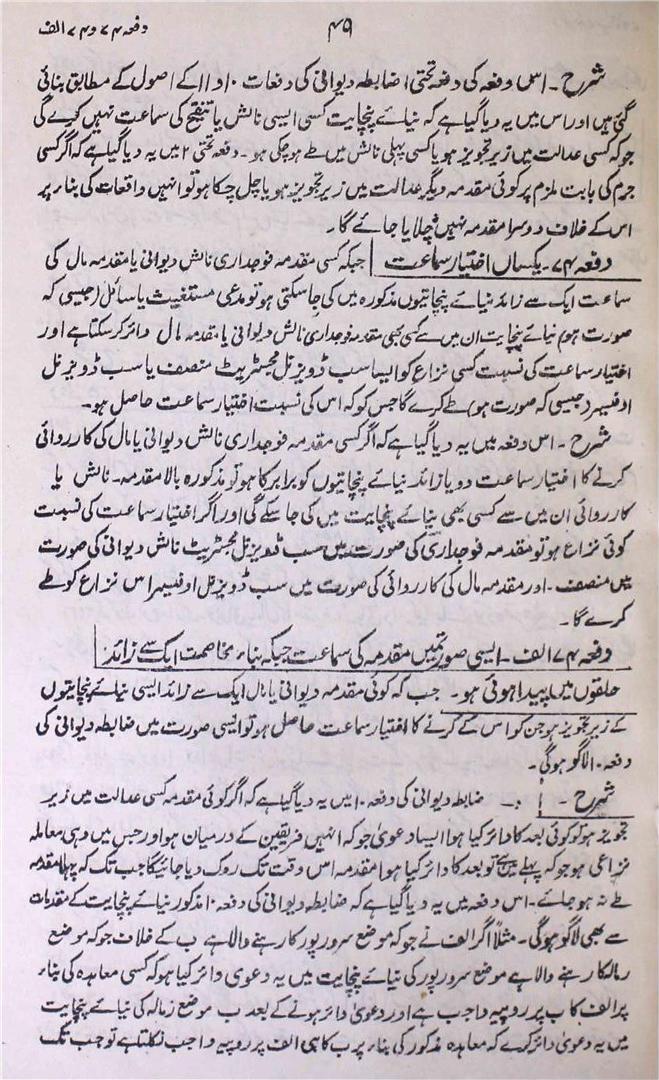 ۴۹
دفعہ ۷۴ و ۷۴ الف
شرح ۔ اس دفعہ کی دفعہ تحتی ۱ ضابطہ دیوانی کی دفعات ۱۰ و ۱۱ کے اصول کے مطابق بنائی
گئی ہیں اور اس میں یہ دیا گیا ہے کہ نیائے پنچایت کسی ایسی نالش یا تنقیح کی سماعت نہیں کرے گی
جو کہ کسی عدالت میں زیر تجویز ہو یا کسی پہلی نالش میں طے ہو چکی ہو ۔ دفعہ تحتی ۲ میں یہ دیا گیا ہے کہ اگر کسی
جرم کی بابت ملزم پر کوئی مقدمہ دیگر عدالت میں زیر تجویز ہو یا چل چکا ہو تو انہیں واقعات کی بناء پر
اس کے خلاف دوسرا مقدمہ نہیں چلایا جائے گا ۔
دفعہ ۷۴ ۔ یکساں اختیار سماعت جبکہ کسی مقدمہ فوجداری نالش دیوانی یا مقدمہ مال کی
سماعت ایک سے زائد نیائے پنچایتوں مذکورہ میں کی جا سکتی ہو تو مدعی مستغیث یا سائل (جیسی کہ
صورت ہو) نیائے پنچایت ان میں سے کسی بھی مقدمہ فوجداری نالش دیوانی یا مقدمہ مال دائر کر سکتا ہے اور
اختیار سماعت کی نسبت کسی نزاع کو ایسا سب ڈویزنل مجسٹریٹ منصف یا سب ڈویزنل
اوفیسر (جیسی کہ صورت ہو) طے کرے گا جس کو کہ اس کی نسبت اختیار سماعت حاصل ہو ۔
شرح ۔ اس دفعہ میں یہ دیا گیا ہے کہ اگر کسی مقدمہ فوجداری نالش دیوانی یا مال کی کارروائی
کرنے کا اختیار سماعت دو یا زائد نیائے پنچایتوں کو برابر کا ہو تو مذکورہ بالا مقدمہ ۔ نالش یا
کارروائی ان میں سے کسی بھی نیائے پنچایت میں کی جا سکے گی اور اگر اختیار سماعت کی نسبت
کوئی نزاع ہو تو مقدمہ فوجداری کی صورت میں سب ڈویزنل مجسٹریٹ نالش دیوانی کی صورت
میں منصف ۔ اور مقدمہ مال کی کارروائی کی صورت میں سب ڈویزنل اوفیسر اس نزاع کو طے
کرے گا ۔
دفعہ ۷۴ الف ۔ ایسی صورتمیں مقدمہ کی سماعت جبکہ بناء مخاصمت ایک سے زائد
حلقوں میں پیدا ہوئی ہو ۔ جب کہ کوئی مقدمہ دیوانی یا مال ایک سے زائد ایسی نیائے پنچایتوں
کے زیر تجویز ہو جن کو اس کے کرنے کا اختیار سماعت حاصل ہو تو ایسی صورت میں ضابطہ دیوانی کی
دفعہ ۱۰ لاگو ہوگی ۔
شرح ۔ ضابطہ دیوانی کی دفعہ ۱۰ میں یہ دیا گیا ہے کہ اگر کوئی مقدمہ کسی عدالت میں زیر
تجویز ہو تو کوئی بعد کا دائر کیا ہوا ایسا دعویٰ جو کہ انہیں فریقین کے درمیان ہو اور جس میں وہی معاملہ
نزاعی ہو جو کہ پہلے میں ہے تو بعد کا دائر کیا ہوا مقدمہ اس وقت تک روک دیا جائیگا جب تک کہ پہلا مقدمہ
طے نہ ہو جائے ۔ اس دفعہ میں یہ دیا گیا ہے کہ ضابطہ دیوانی کی دفعہ ۱۰ مذکور نیائے پنچایت کے مقدمات
سے بھی لاگو ہوگی ۔ مثلاً اگر الف نے جو کہ موضع سرور پور کا رہنے والا ہے ب کے خلاف جو کہ موضع
رمالہ کا رہنے والا ہے موضع سرور پور کی نیائے پنچایت میں یہ دعوی دائر کیا ہو کہ کسی معاہدہ کی بناء
پر الف کا ب پر روپیہ واجب ہے اور دعویٰ دائر ہونے کے بعد ب موضع زمالہ کی نیائے پنچایت
میں یہ دعویٰ دائر کرے کہ معاہدہ مذکور کی بناء پر ب کا ہی الف پر روپیہ واجب نکلتا ہے تو جب تک